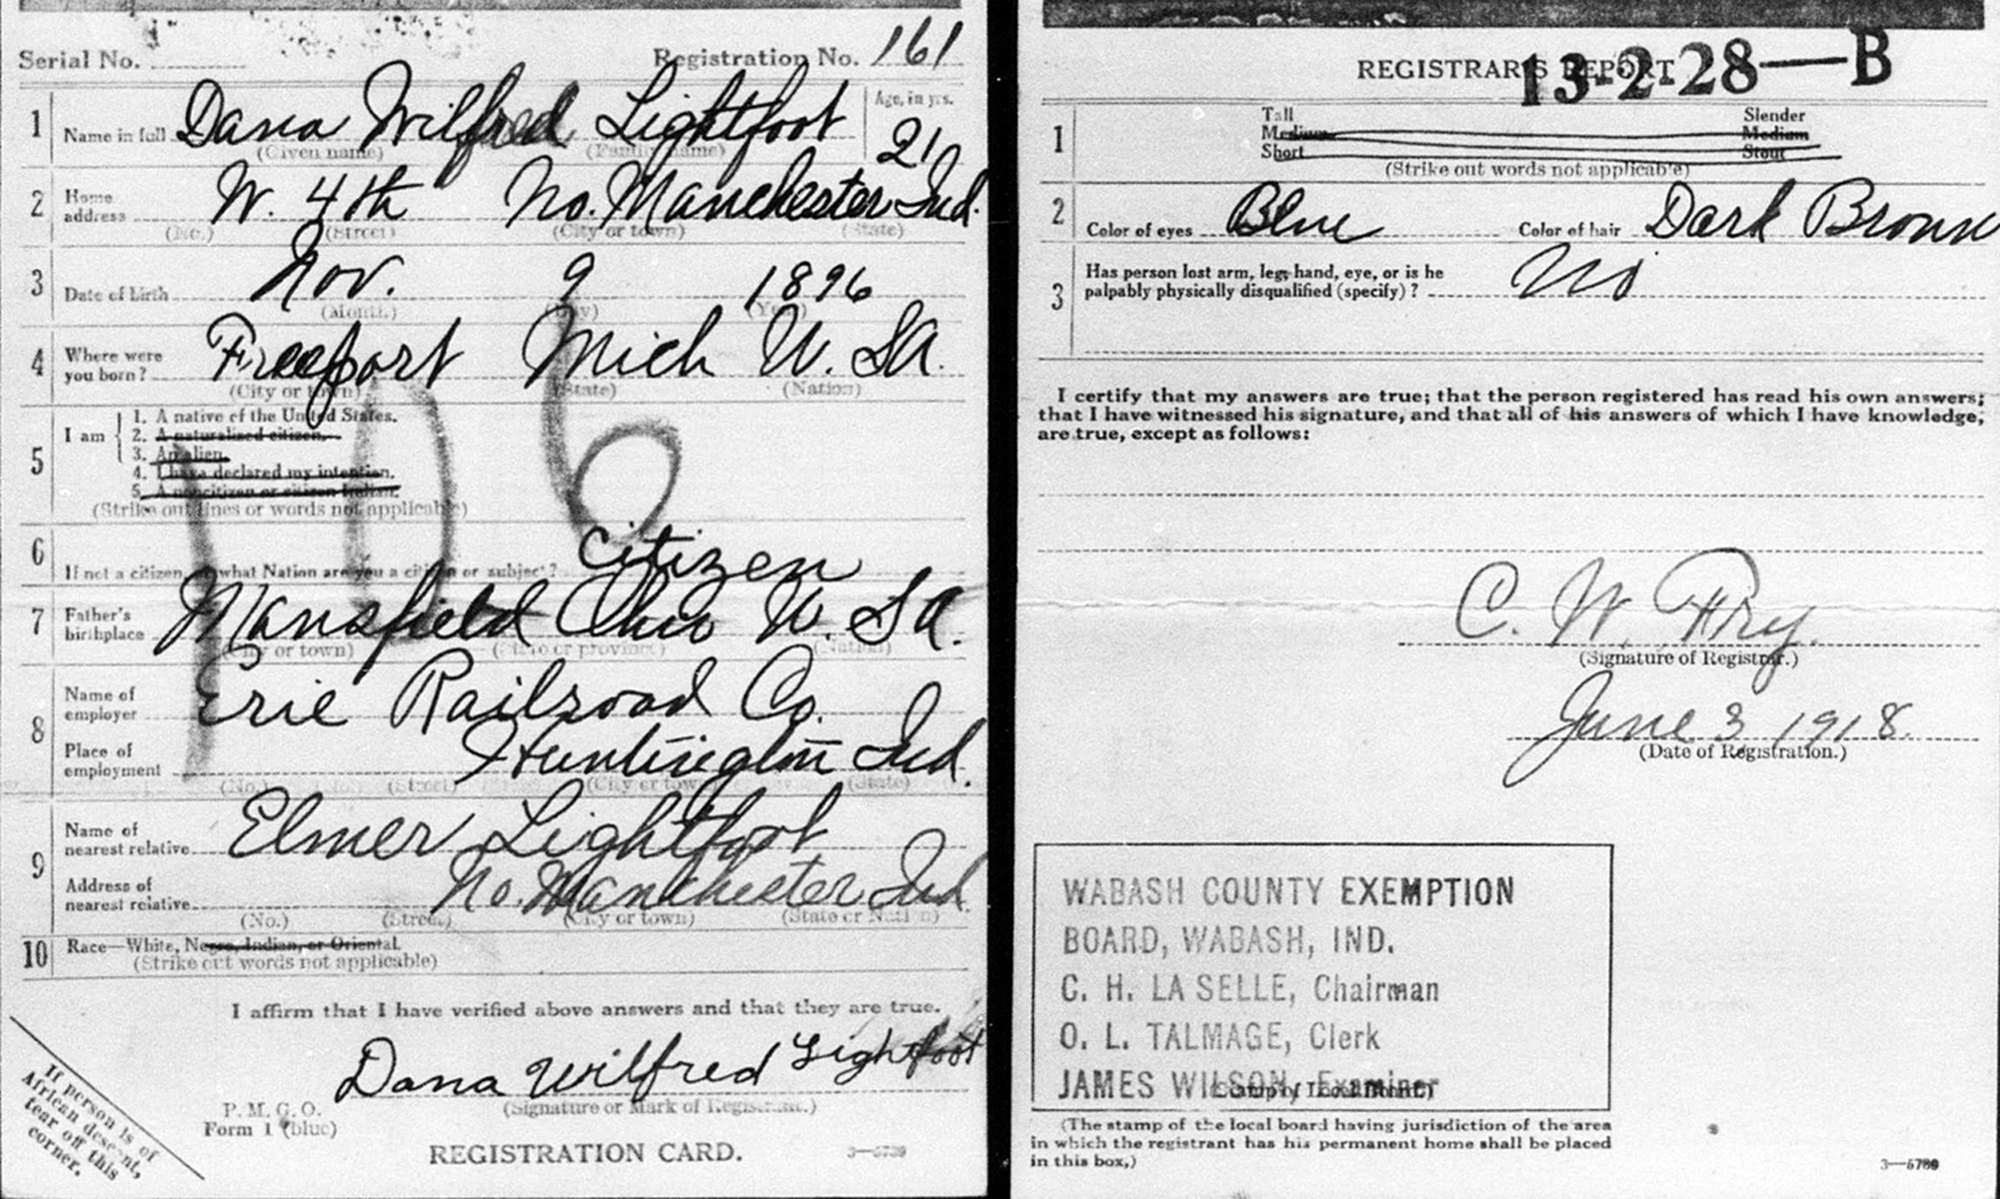 Serial No. Registration No. 161
1 Name in full Dana Wilfred Lightfoot Age, in yrs. 21
(Given name) (Family name)
2 Home address W. 4th No. Manchester Ind.
(No.) (Street) (City or town) (State)
3 Date of birth Nov. 9 1896
(Month.) (Day) (Year)
4 Where were you born? Freeport Mich U. SA.
(City or town) (State) (Nation)
5 I am
1. A native of the United States.
2. A naturalized citizen.
3. An alien.
4. I have declared my intention.
5. A noncitizen or citizen Indian.
(Strike out lines or words not applicable)
106
6 If not a citizen, of what Nation are you a citizen or subject? Citizen
7 Father's birthplace Mansfield Ohio U. SA.
(City or town) (State or province) (Nation)
8 Name of employer Erie Railroad Co.
Place of employment Huntington Ind.
(No.) (Street) (City or town) (State)
9 Name of nearest relative Elmer Lightfoot
Address of nearest relative No. Manchester Ind.
(No.) (Street) (City or town) (State or Nation)
10 Race—White, Negro, Indian, or Oriental.
(Strike out words not applicable)
I affirm that I have verified above answers and that they are true.
Dana Wilfred Lightfoot
(Signature or Mark of Registrant.)
P. M. G. O.
Form 1 (blue)
REGISTRATION CARD.
3—5739
If person is of
African descent,
tear off this
corner.
REGISTRAR'S REPORT
13-2-28—B
1 Tall Slender
Medium Medium
Short Stout
(Strike out words not applicable)
2 Color of eyes Blue Color of hair Dark Brown
3 Has person lost arm, leg, hand, eye, or is he
palpably physically disqualified (specify)? No
I certify that my answers are true; that the person registered has read his own answers;
that I have witnessed his signature, and that all of his answers of which I have knowledge,
are true, except as follows:
C. W. Fry.
(Signature of Registrar.)
June 3 1918.
(Date of Registration.)
WABASH COUNTY EXEMPTION
BOARD, WABASH, IND.
C. H. LA SELLE, Chairman
O. L. TALMAGE, Clerk
JAMES WILSON, Examiner
(Stamp of Local Board)
(The stamp of the local board having jurisdiction of the area
in which the registrant has his permanent home shall be placed
in this box.)
3—5739